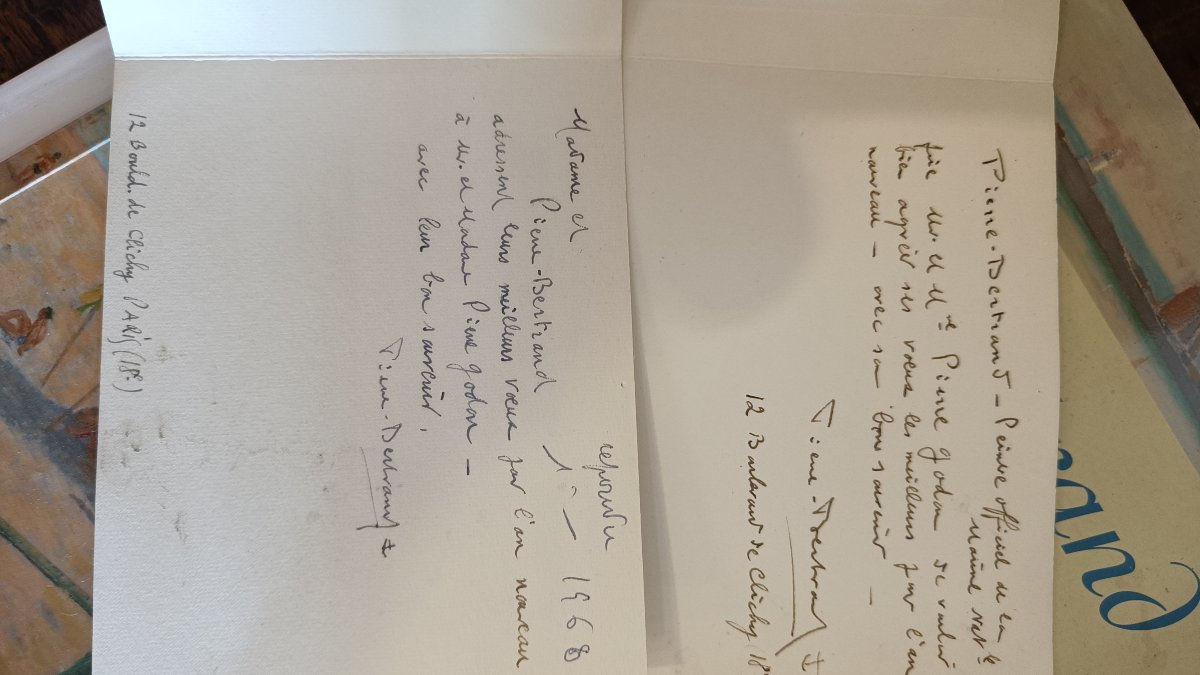 Pierre-Bertrand - Peintre officiel de la
Marine Nat le
prie Mr. et Mme Pierre Godon de vouloir
bien agréer ses vœux les meilleurs pour l'an
nouveau - avec son bon souvenir -
Pierre-Bertrand
12 Boulevard de Clichy 18e
répondu
1968
Madame et
Pierre-Bertrand
adressent leurs meilleurs vœux pour l'an nouveau
à Mr. et Madame Pierre Godon -
avec leur bon souvenir.
Pierre-Bertrand
12 Bould. de Clichy PARIS (18e)
and